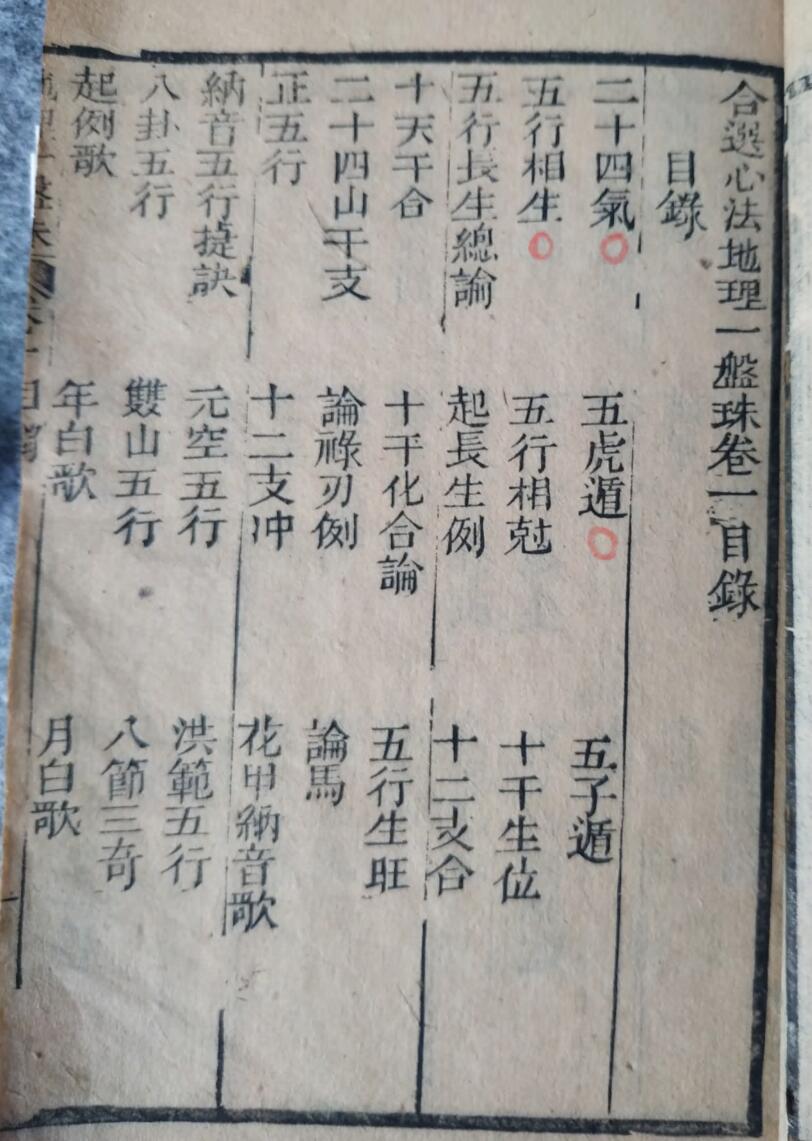 合選心法地理一盤珠卷一目錄
目錄
二十四氣 五虎遁 五子遁
五行相生 五行相尅 十干生位
五行長生總論 起長生例 十二支合
十天干合 十干化合論 五行生旺
二十四山干支 論祿刃例 論馬
正五行 十二支冲 花甲納音歌
納音五行捷訣 元空五行 洪範五行
八卦五行 雙山五行 八節三奇
起例歌 年白歌 月白歌